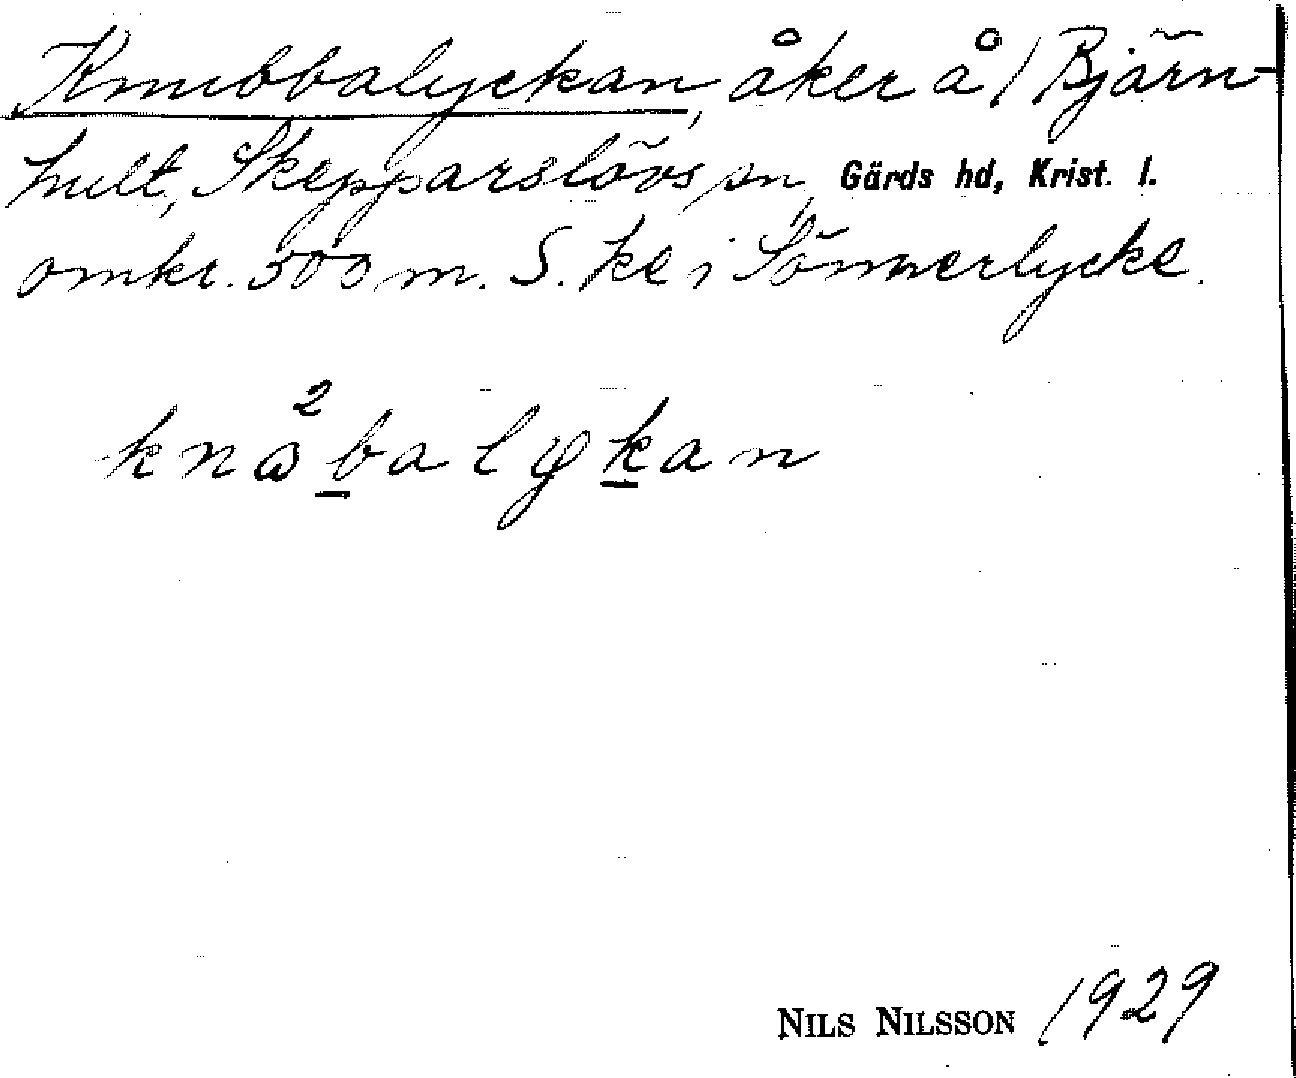 Knubbalyckan, åker å 1 Björn-
hult, Skepparslövs sn, Gärds hd, Krist. l.
omkr. 500 m. S. k e i Sönnerlycke.
knå²balykan
NILS NILSSON 1929